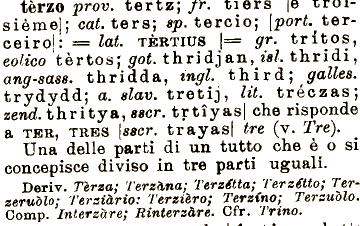 tèrzo prov. tertz; fr. tiers [e troi-
sième]; cat. ters; sp. tercio; [port. ter-
ceiro]: = lat. TÈRTIUS [= gr. trítos,
eolico tèrtos; got. thridjan, isl. thridi,
ang-sass. thridda, ingl. third; galles.
trydydd; a. slav. tretij, lit. tréczas;
zend. thritya, sscr. tṛtîyas] che risponde
a TER, TRES [sscr. trayas] tre (v. Tre).
Una delle parti di un tutto che è o si
concepisce diviso in tre parti uguali.
Deriv. Tèrza; Terzàna; Terzétta; Terzétto; Ter-
zeruòlo; Terziàrio: Terzièro; Terzíno; Terzuòlo.
Comp. Interzàre; Rinterzàre. Cfr. Trino.